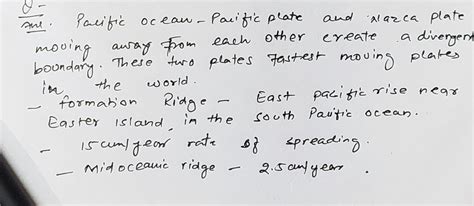 Q-
Ans. Pacific ocean - Pacific plate and Nazca plate
moving away from each other create a divergent
boundary. These two plates fastest moving plates
in the world.
- formation Ridge - East pacific rise near
Easter island, in the south Pacific ocean.
- 15cm/year rate of spreading.
- Mid oceanic ridge - 2.5cm/year.